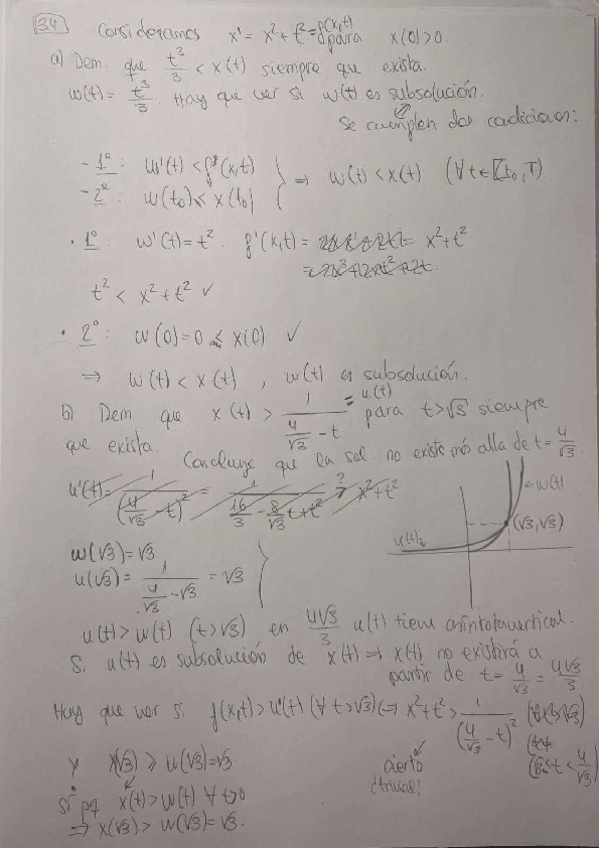 34 Consideramos x' = x² + t² = f(x,t) para x(0) > 0
a) Dem. que t³/3 < x(t) siempre que exista.
w(t) = t³/3. Hay que ver si w(t) es subsolución.
Se cumplen dos condiciones:
- 1º: w'(t) < f(x,t) } ⇒ w(t) < x(t) (∀t ∈ [t₀, T)
- 2º: w(t₀) ≤ x(t₀)
· 1º: w'(t) = t². f'(x,t) = x² + t²
t² < x² + t² ✓
· 2º: w(0) = 0 ≤ x(0) ✓
⇒ w(t) < x(t), w(t) es subsolución.
b) Dem que x(t) > 1/(4/√3 - t) = u(t) para t > √3 siempre
que exista. Concluye que la sol. no existe más alla de t = 4/√3
u'(t) = 1/(4/√3 - t)² = 1/(16/3 - 8/√3 t + t²) > x² + t²
?
w(t)
(√3, √3)
u(t)
w(√3) = √3
u(√3) = 1/(4/√3 - √3) = √3
u(t) > w(t) (t > √3) en 4√3/3 u(t) tiene asíntota vertical.
Si u(t) es subsolución de x(t) ⇒ x(t) no existirá a
partir de t = 4/√3 = 4√3/3
Hay que ver si f(x,t) > u'(t) (∀t > √3) ⇔ x² + t² > 1/(4/√3 - t)²
y x(√3) ≥ u(√3) = √3.
cierto
¿trivial?
t < 4/√3)
Sí pq x(t) > w(t) ∀t>0
⇒ x(√3) > w(√3) = √3.